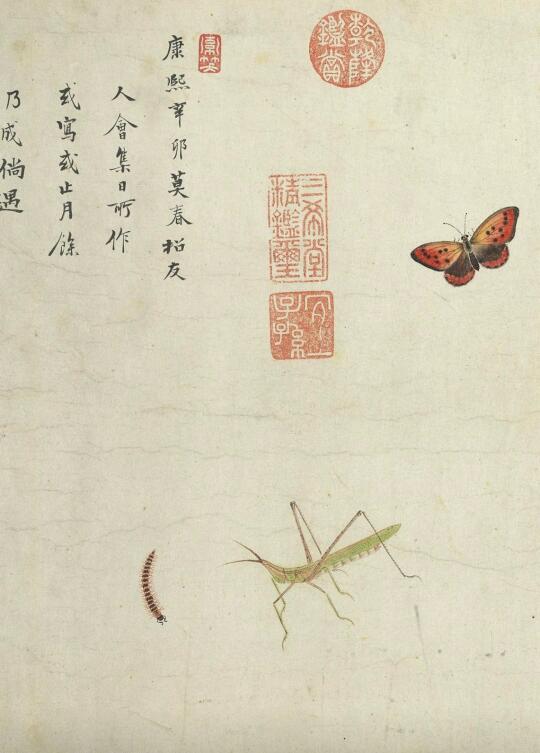 乾隆鑑賞
三希堂精鑑璽
宜子孫
康熙辛卯莫春招友
人會集日所作
或寫或止月餘
乃成倘遇